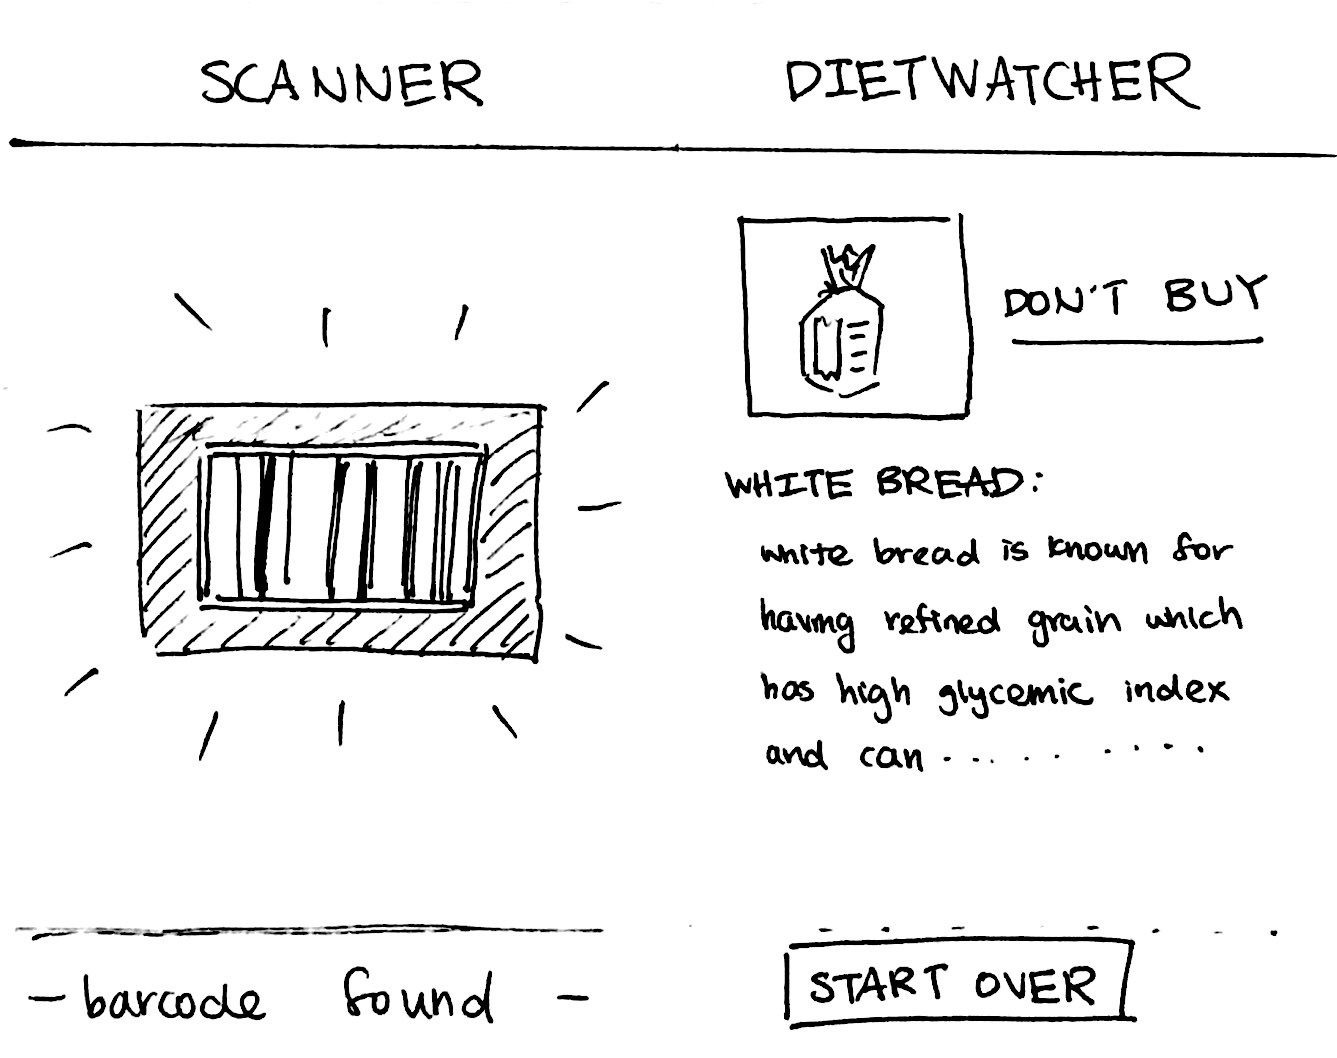 SCANNER
DIETWATCHER
DON'T BUY
WHITE BREAD:
white bread is known for
having refined grain which
has high glycemic index
and can .... . ....
- barcode found -
START OVER